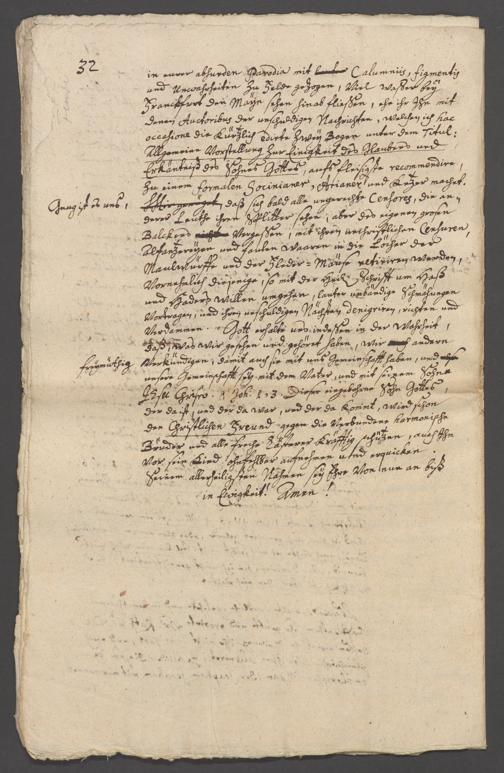 32
in eurer absurden Parodia mit Calumniis, figmentis
und Unwahrheiten zu Felde gezogen, Viel Waßer bey
Franckfurt den Mayn sehen hinab fließen, ehe ihr Ihn mit
denen Auctoribus der unschuldigen Nachrichten, welchen ich hac
occasione die kürtzlich edirte Zwey Bogen unter dem Titul:
Allgemeine Vorstellung zur Einigkeit des Glaubens und
Erkäntniß des Sohnes Gottes, aufs fleißigste recommendire,
zu einem formalen Socinianer, Arianer und Ketzer machet.
Genug ist es uns,
daß sich bald alle ungerechte Censores, die an-
derer Leuthe ihren Splitter sehen, aber des eigenen großen
Balckens Vergeßen, mit ihren unchristlichen Censuren,
und faulen Waaren in die Löcher der
Maulwürffe und der Fleder-Mäuse retiriren werden,
Vornehmlich diejenige, so mit der Heil. Schrifft um Haß
und Haders Willen umgehen, lauter unbändige Schmähungen
Vortragen, und ihren unschuldigen Nächsten denigriren, richten und
Verdammen. Gott erhalte uns indeßen in der Wahrheit,
daß, was wir gesehen und gehöret haben, wir andern
freymüthig
Verkündigen, damit auch sie mit uns Gemeinschafft haben, und
unsere Gemeinschafft sey mit dem Vater, und mit seinem Sohne
JEsu Christo. 1 Joh. 1. 3. Dieser eingebohrne Sohn Gottes,
der da ist, und der da war, und der da kommt, wird schon
den Christlichen Freund gegen die Verbundene harmonische
Brüder und alle freche Lästerer kräfftig schützen, auch Ihn
Vor sein Kind aufnehmen und erquicken.
Seinem allerheiligsten Nahmen sey Ehre Von nun an biß
in Ewigkeit! Amen!